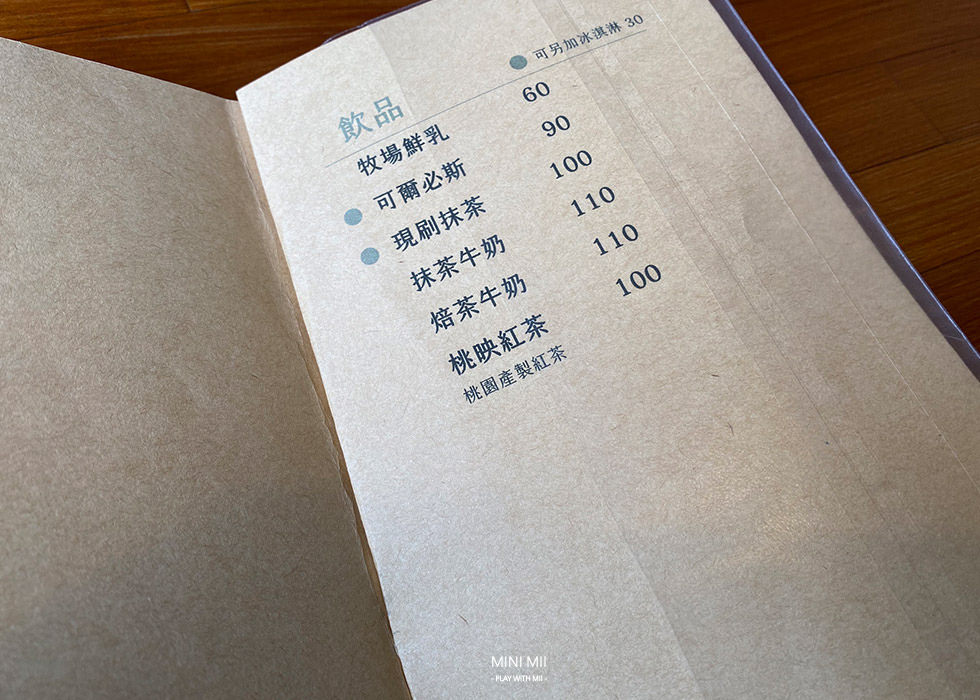 飲品
● 可另加冰淇淋 30
牧場鮮乳 60
● 可爾必斯 90
● 現刷抹茶 100
抹茶牛奶 110
焙茶牛奶 110
桃映紅茶 100
桃園產製紅茶
MINI MII
- PLAY WITH MII -